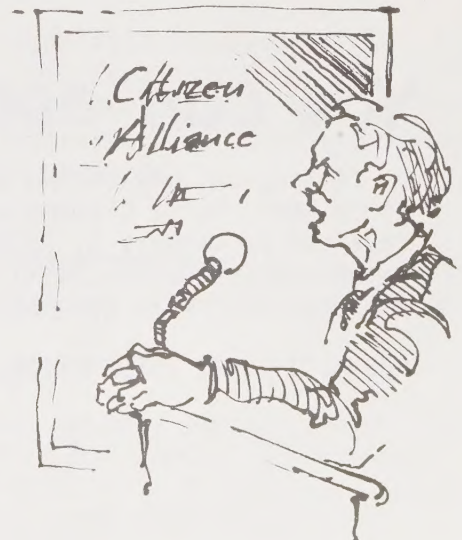 Citizen
Alliance